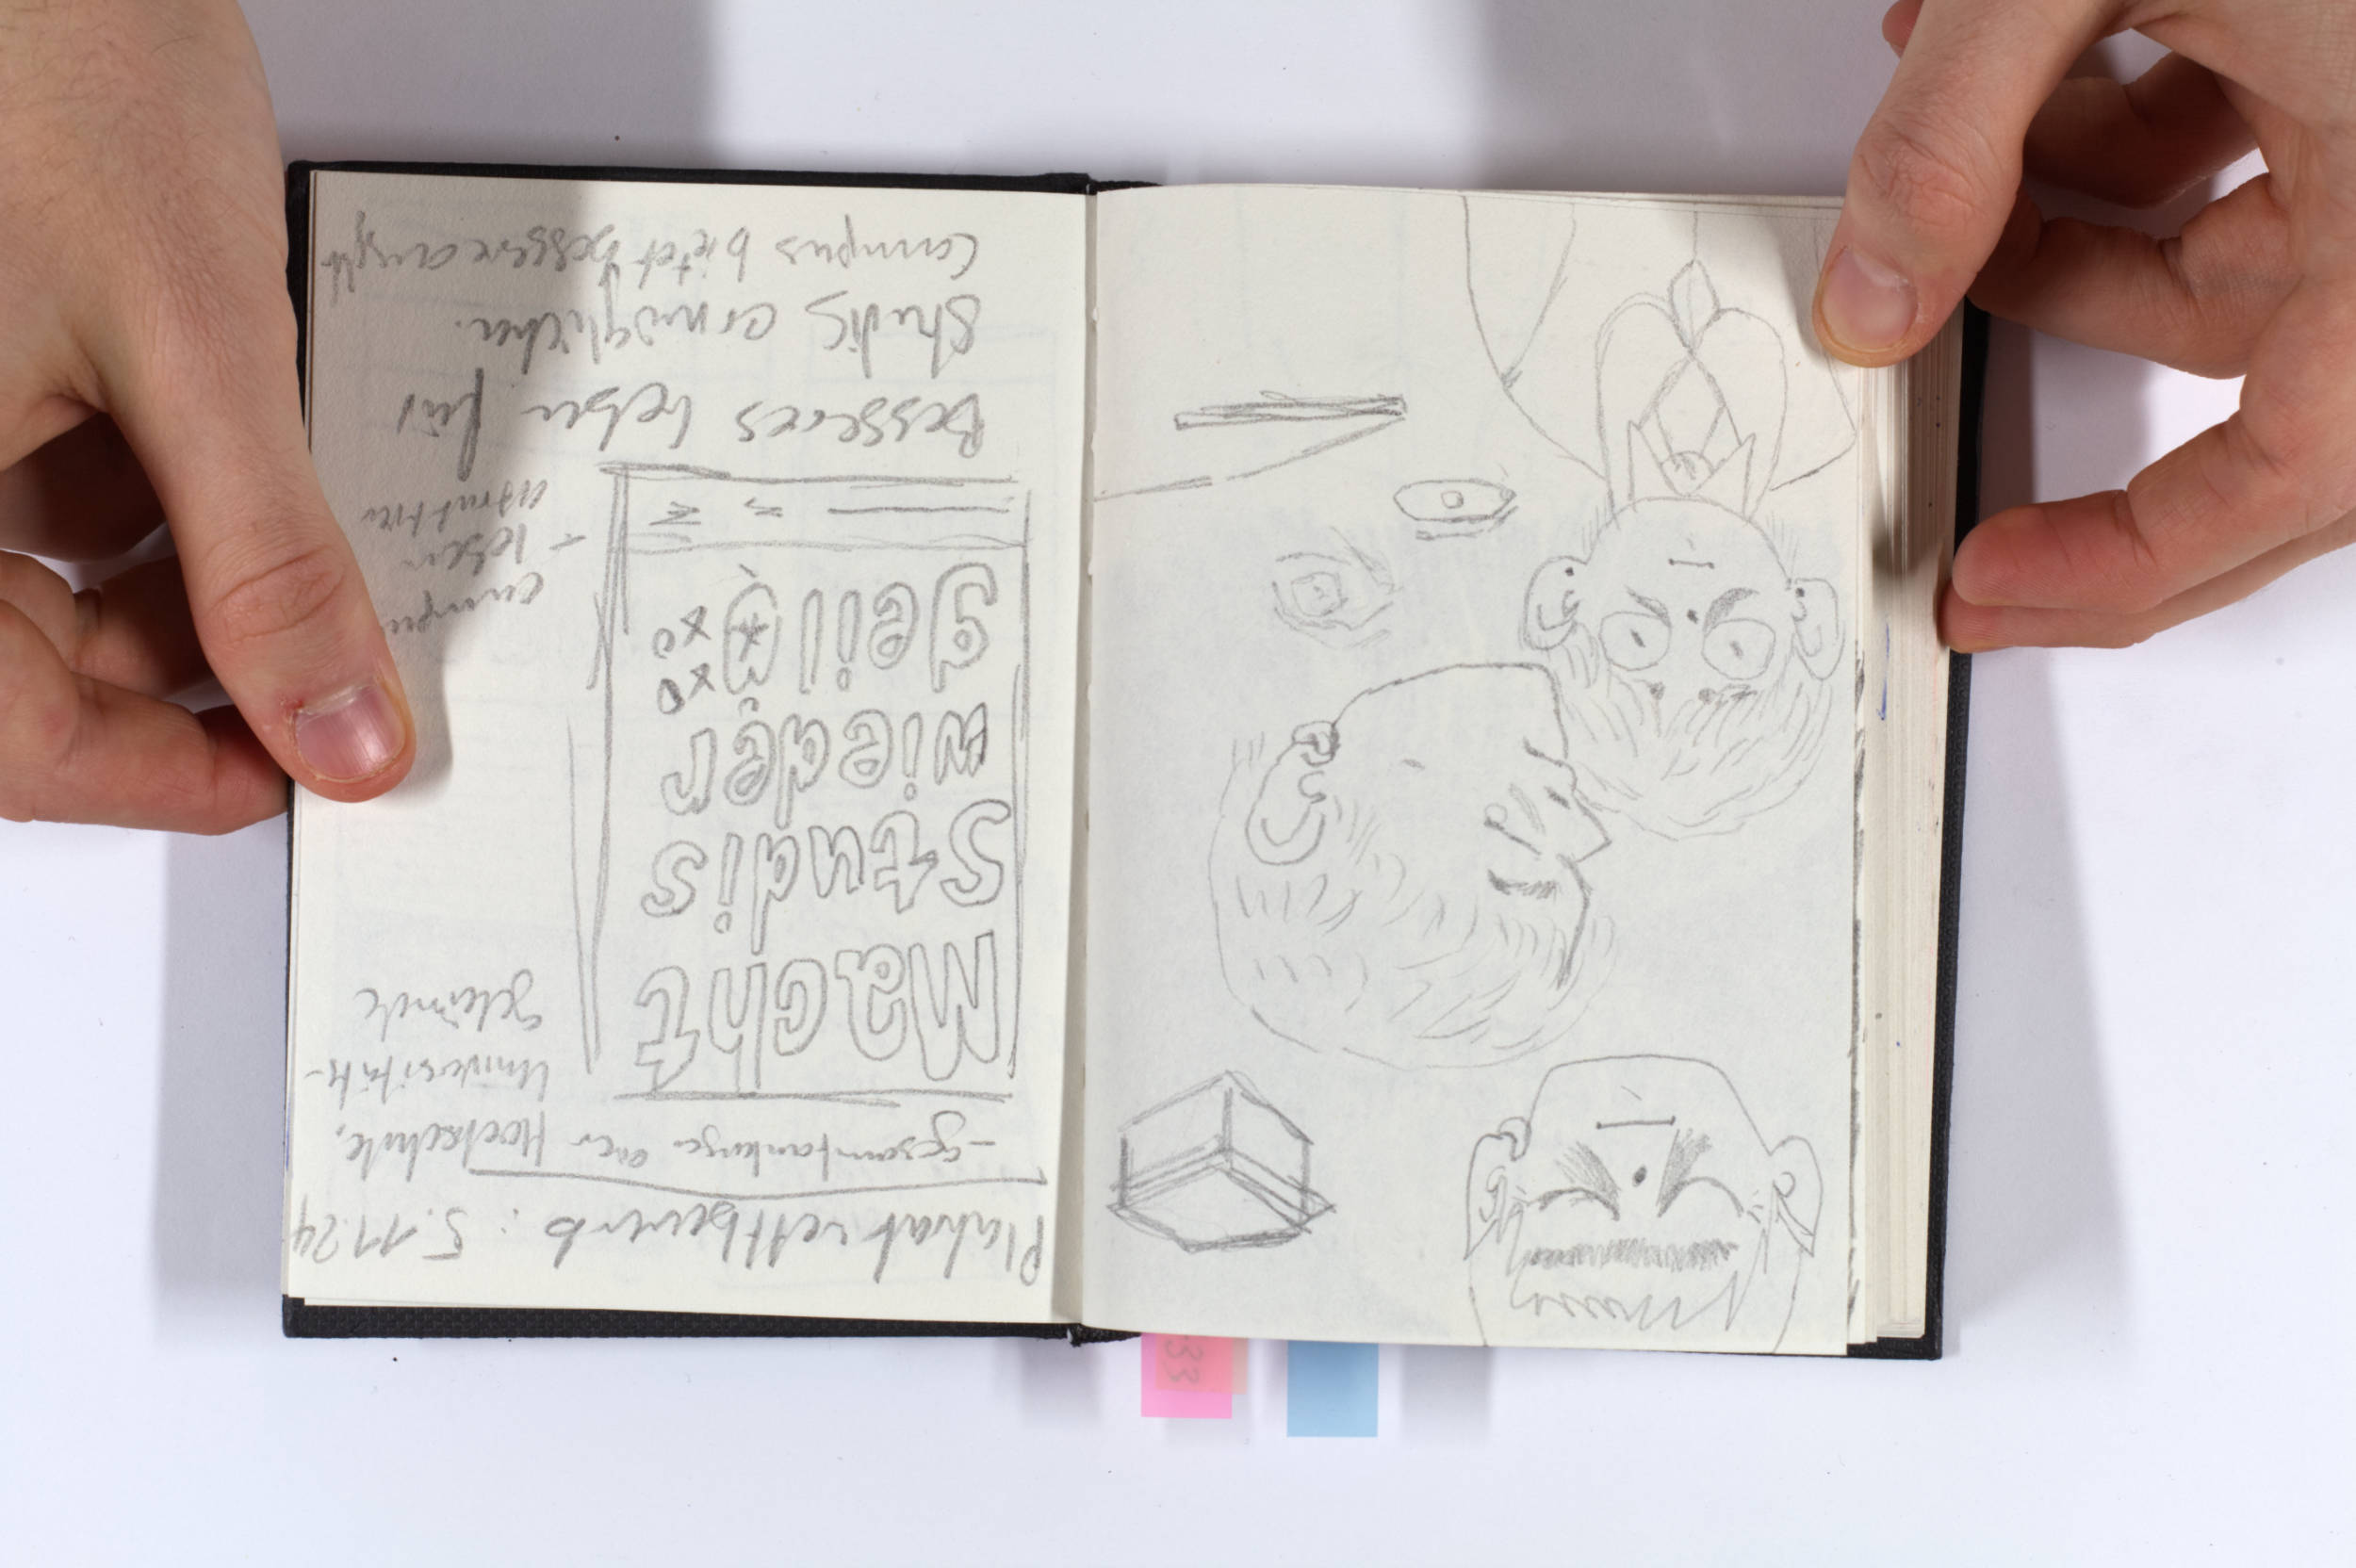 Plakatwettbewerb : 5.11.24
-gesamtanlage einer Hochschule,
Universitäts-
gelände
Macht
Studis
wieder
geil
campus
- leben
Besseres leben für
Studis ermöglichen.
Campus bietet bessere
33